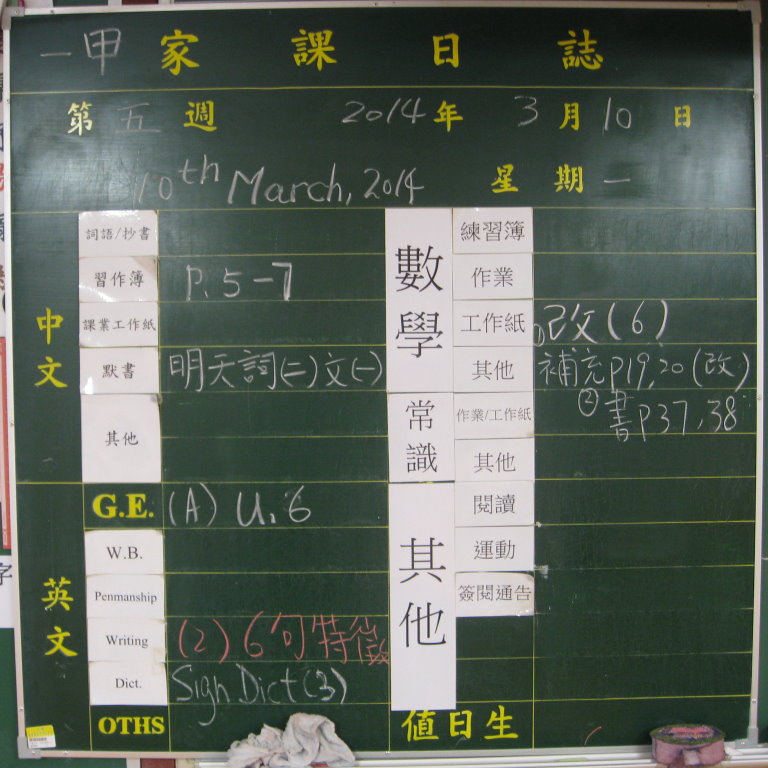 一甲 家課日誌
第五週 2014年3月10日
10th March, 2014 星期一
中文
詞語/抄書
習作簿 P.5-7
課業工作紙
默書 明天詞(二)文(一)
其他
英文
G.E. (A) U.6
W.B.
Penmanship
Writing (2) 6句特徵
Dict. Sign Dict (3)
OTHS
數學
練習簿
作業
工作紙 改(6)
其他 補充P19,20(改)
② 書P37,38
常識
作業/工作紙
其他
其他
閱讀
運動
簽閱通告
值日生